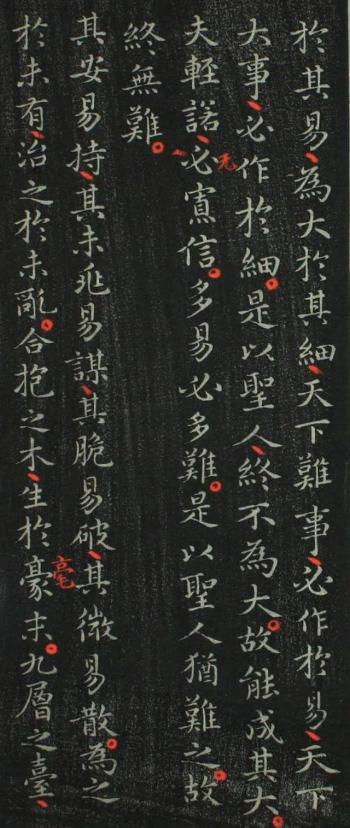 於其易、為大於其細、天下難事、必作於易、天下
大事、必作於細。是以聖人、終不為大。故能成其大。
夫輕諾、必寡信。多易必多難。是以聖人猶難之。故
終無難。
其安易持、其未兆易謀、其脆易破、其微易散。為之
於未有、治之於未亂。合抱之木、生於豪末。九層之臺、
毫